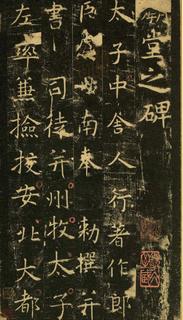 堂之碑
太子中舍人行著作郎
臣虞世南奉 勑撰并
書 司徒并州牧太子
左率兼撿挍安北大都